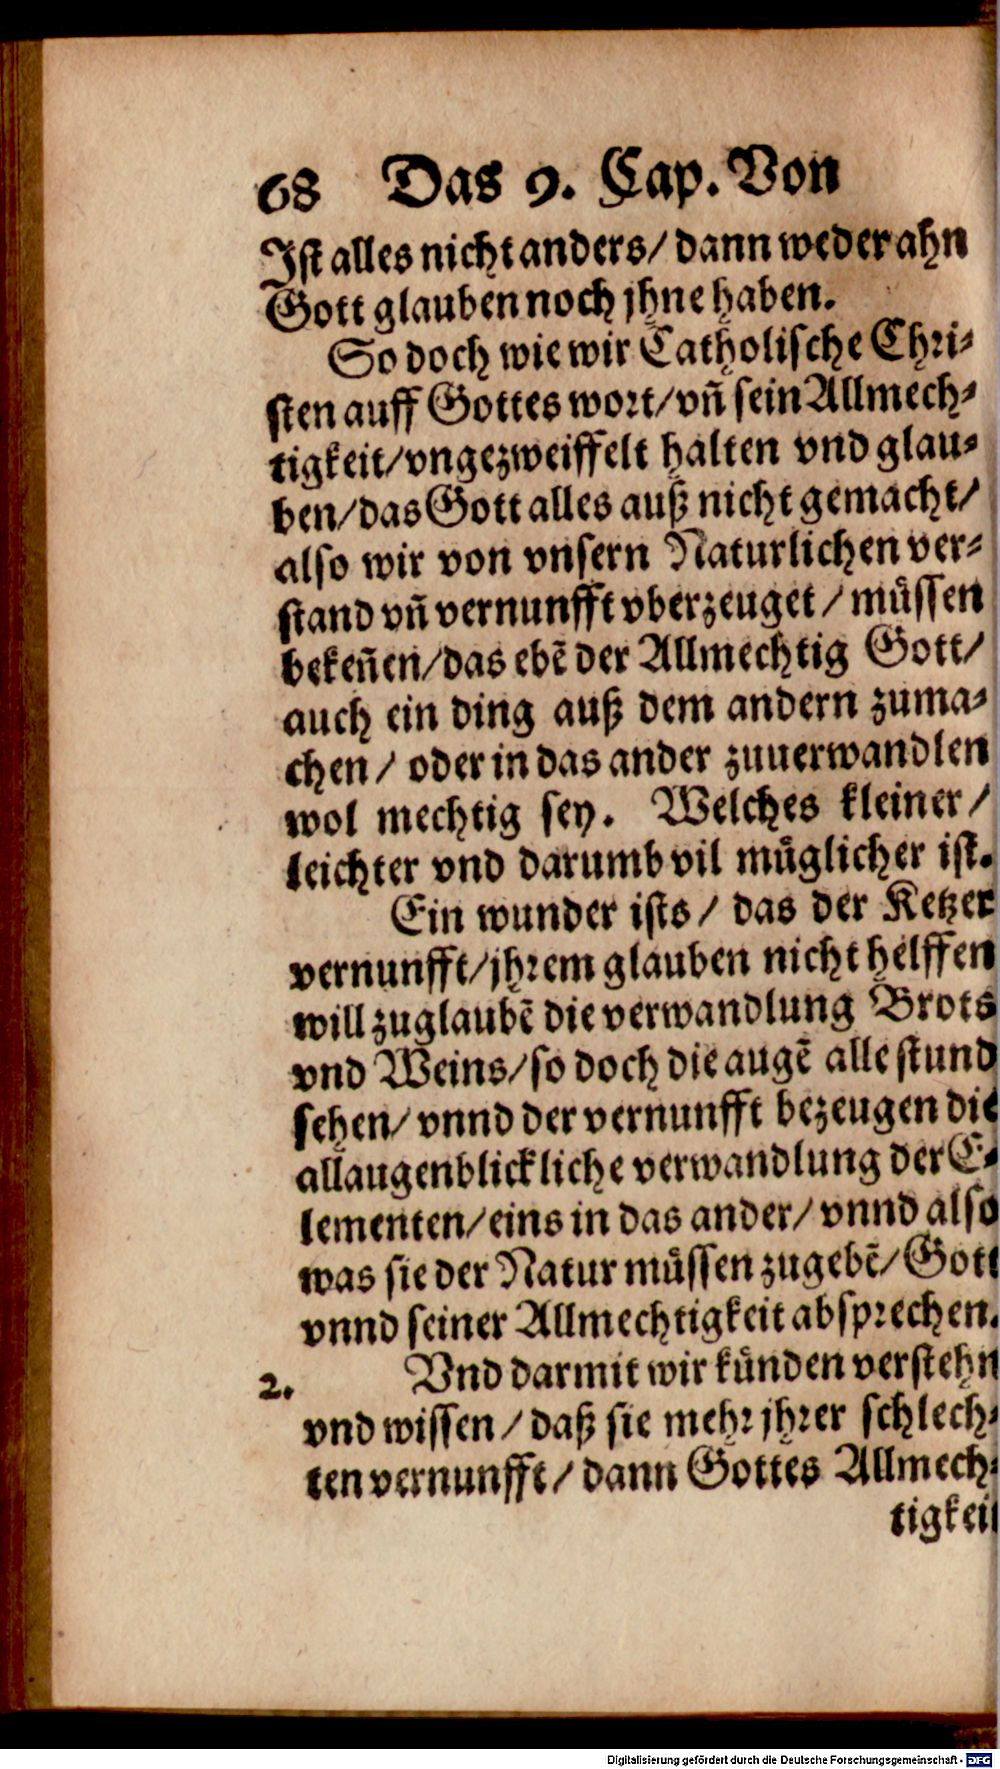 68 Das 9. Cap. Von
Ist alles nicht anders/ dann weder ahn
Gott glauben noch jhne haben.
So doch wie wir Catholische Chri-
sten auff Gottes wort/ vn̄ sein Allmech-
tigkeit/ vngezweiffelt halten vnd glau-
ben/ das Gott alles auß nicht gemacht/
also wir von vnsern Naturlichen ver-
stand vn̄ vernunfft vberzeuget / müssen
beken̄en/ das ebē der Allmechtig Gott/
auch ein ding auß dem andern zuma-
chen / oder in das ander zuuerwandlen
wol mechtig sey. Welches kleiner /
leichter vnd darumb vil müglicher ist.
Ein wunder ists / das der Ketzer
vernunfft/ jhrem glauben nicht helffen
will zuglaubē die verwandlung Brots
vnd Weins/ so doch die augē alle stund
sehen/ vnnd der vernunfft bezeugen die
allaugenblickliche verwandlung der E-
lementen/ eins in das ander/ vnnd also
was sie der Natur müssen zugebē/ Gott
vnnd seiner Allmechtigkeit absprechen.
2. Vnd darmit wir künden verstehn
vnd wissen / daß sie mehr jhrer schlech-
ten vernunfft / dann Gottes Allmech-
tigkeit
Digitalisierung gefördert durch die Deutsche Forschungsgemeinschaft - DFG